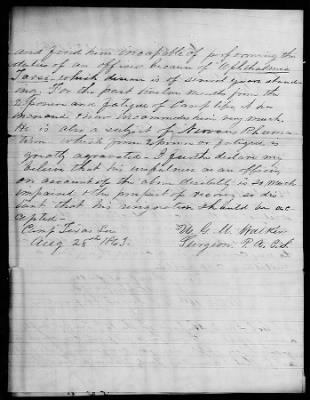 and find him incapable of performing the
duties of an officer because of "Ophthalmia
Tarsi" which disease is of several years stand-
ing. For the past twelve months from the
exposure and fatigue of Camp life it has
increased
He is also a subject of Nervous Rheuma-
tism which from exposure or fatigue is
greatly aggravated. I further declare my
believe that his usefulness as an officer
on account of the above disability is so much
impaired & the prospect of recovery so dis-
tant that his resignation should be ac-
cepted.
Camp Texas
Aug 25th 1863.
M. G. M. Walker
Surgeon P. A. C. S.